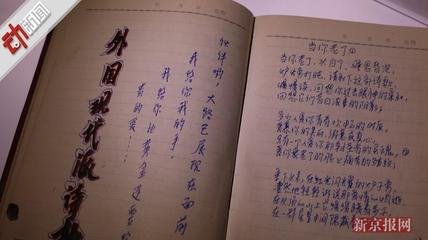 动新闻
外国现代派诗
伙伴啊，大路已展现在面前
我给你我的手，
我给你比黄金还宝
贵的爱……
当你老了
当你老了，头白了，睡思昏沉，
炉火旁打盹，请取下这部诗歌，
慢慢读，回想你过去眼神的柔和，
回想它们昔日浓重的阴影；
多少人爱你青春欢畅的时辰，
爱慕你的美丽，假意或真心，
只有一个人爱你那朝圣者的灵魂，
爱你衰老了的脸上痛苦的皱纹；
垂下头来，在红光闪耀的炉子旁，
凄然地轻轻诉说那爱情的消逝，
在头顶的山上它缓缓踱着步子，
在一群星星中间隐藏
新京报网